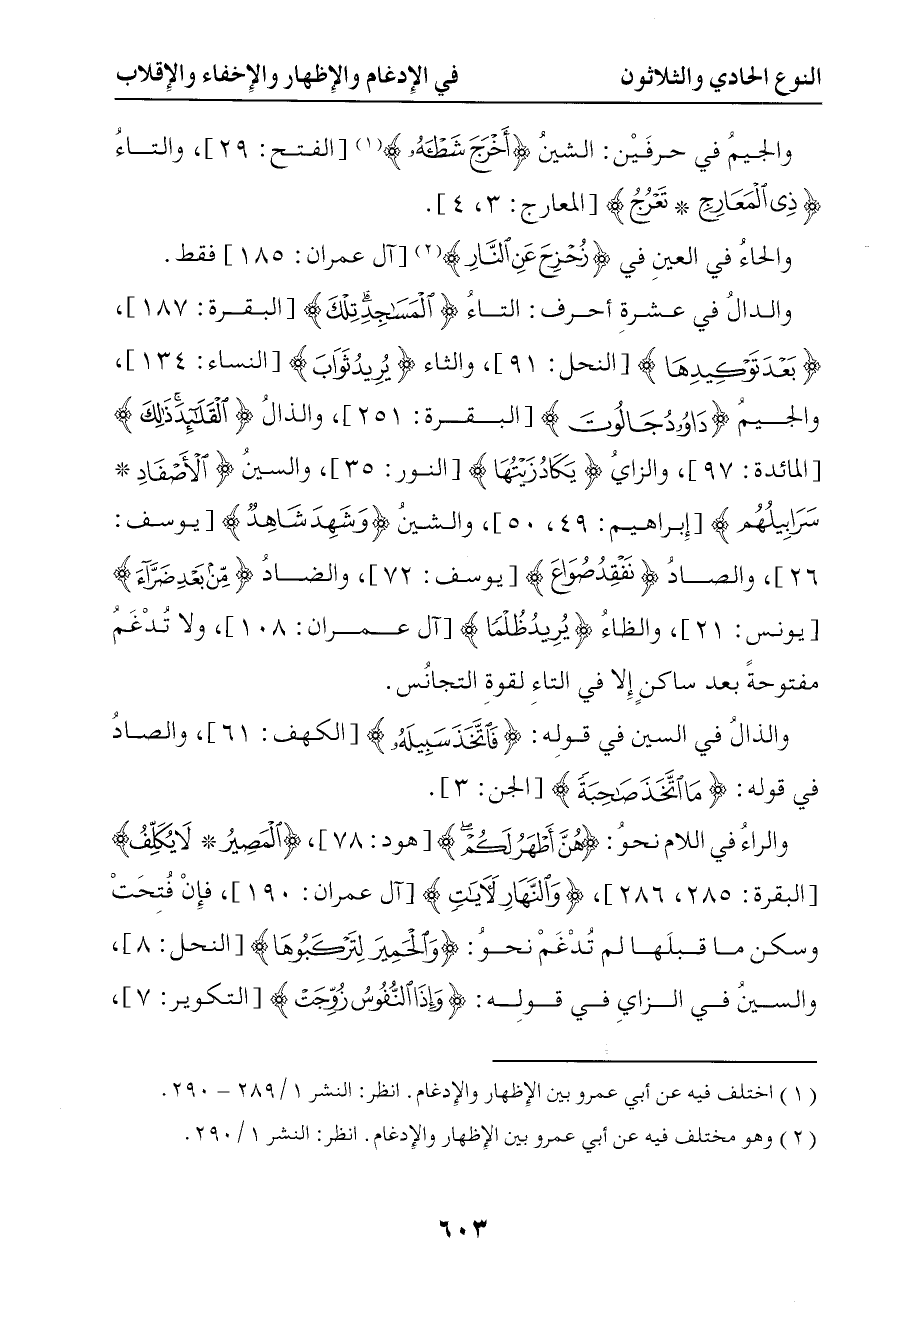 النوع الحادي والثلاثون في الإدغام والإظهار والإخفاء والإقلاب
والجيمُ في حرفَيْن: الشينُ ﴿أَخْرَجَ شَطْـَٔهُۥ﴾(١) [الفتح: ٢٩]، والتاءُ
﴿ذِى ٱلْمَعَارِجِ * تَعْرُجُ﴾ [المعارج: ٣، ٤].
والحاءُ في العينِ في ﴿زُحْزِحَ عَنِ ٱلنَّارِ﴾(٢) [آل عمران: ١٨٥] فقط.
والدالُ في عشرة أحرف: التاءُ ﴿ٱلْمَسَٰجِدِ ۗ تِلْكَ﴾ [البقرة: ١٨٧]،
﴿بَعْدَ تَوْكِيدِهَا﴾ [النحل: ٩١]، والثاء ﴿يُرِيدُ ثَوَابَ﴾ [النساء: ١٣٤]،
والجيمُ ﴿دَاوُۥدُ جَالُوتَ﴾ [البقرة: ٢٥١]، والذالُ ﴿ٱلْقَلَٰٓئِدَ ۚ ذَٰلِكَ﴾
[المائدة: ٩٧]، والزايُ ﴿يَكَادُ زَيْتُهَا﴾ [النور: ٣٥]، والسينُ ﴿ٱلْأَصْفَادِ *
سَرَابِيلُهُم﴾ [إبراهيم: ٤٩، ٥٠]، والشينُ ﴿وَشَهِدَ شَاهِدٌ﴾ [يوسف:
٢٦]، والصادُ ﴿نَفْقِدُ صُوَاعَ﴾ [يوسف: ٧٢]، والضادُ ﴿مِّنۢ بَعْدِ ضَرَّآءَ﴾
[يونس: ٢١]، والظاءُ ﴿يُرِيدُ ظُلْمًا﴾ [آل عمران: ١٠٨]، ولا تُدْغَمُ
مفتوحةً بعد ساكنٍ إلا في التاءِ لقوة التجانُس.
والذالُ في السين في قوله: ﴿فَٱتَّخَذَ سَبِيلَهُۥ﴾ [الكهف: ٦١]، والصادُ
في قوله: ﴿مَا ٱتَّخَذَ صَٰحِبَةً﴾ [الجن: ٣].
والراءُ في اللام نحوُ: ﴿هُنَّ أَطْهَرُ لَكُمْ ۖ﴾ [هود: ٧٨]، ﴿ٱلْمَصِيرُ * لَا يُكَلِّفُ﴾
[البقرة: ٢٨٥، ٢٨٦]، ﴿وَٱلنَّهَارِ لَءَايَٰتٍ﴾ [آل عمران: ١٩٠]، فإنْ فُتحَتْ
وسكن ما قبلَها لم تُدْغَمْ نحوُ: ﴿وَٱلْحَمِيرَ لِتَرْكَبُوهَا﴾ [النحل: ٨]،
والسينُ في الزايِ في قوله: ﴿وَإِذَا ٱلنُّفُوسُ زُوِّجَتْ﴾ [التكوير: ٧]،
(١) اختلف فيه عن أبي عمرو بين الإظهار والإدغام. انظر: النشر ١/ ٢٨٩ – ٢٩٠.
(٢) وهو مختلف فيه عن أبي عمرو بين الإظهار والإدغام. انظر: النشر ١/ ٢٩٠.
٦٠٣